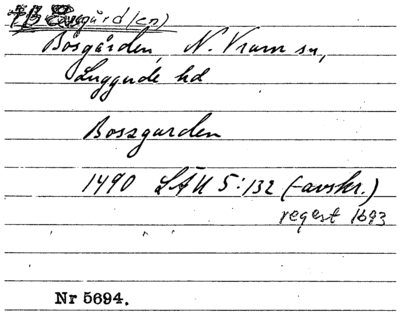 gård(en)
Bosgården, N. Vram sn,
Luggude hd
Boszgarden
1490 LÄU 5:132 (-avskr.)
regest 1693
Nr 5694.